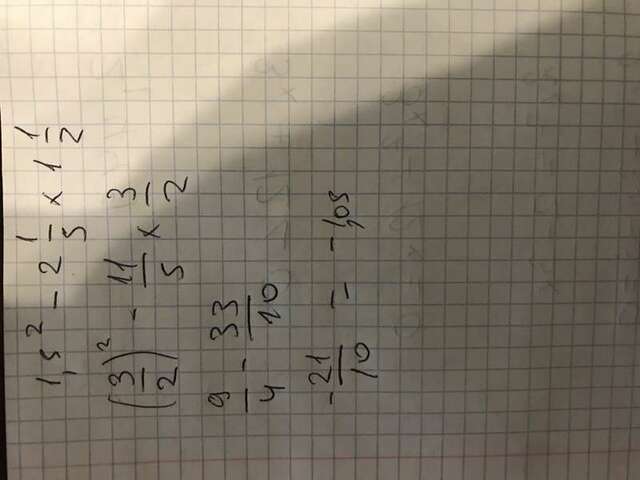 1,5² - 2 1/5 × 1 1/2
(3/2)² - 11/5 × 3/2
9/4 - 33/10
-21/10 = -1,05